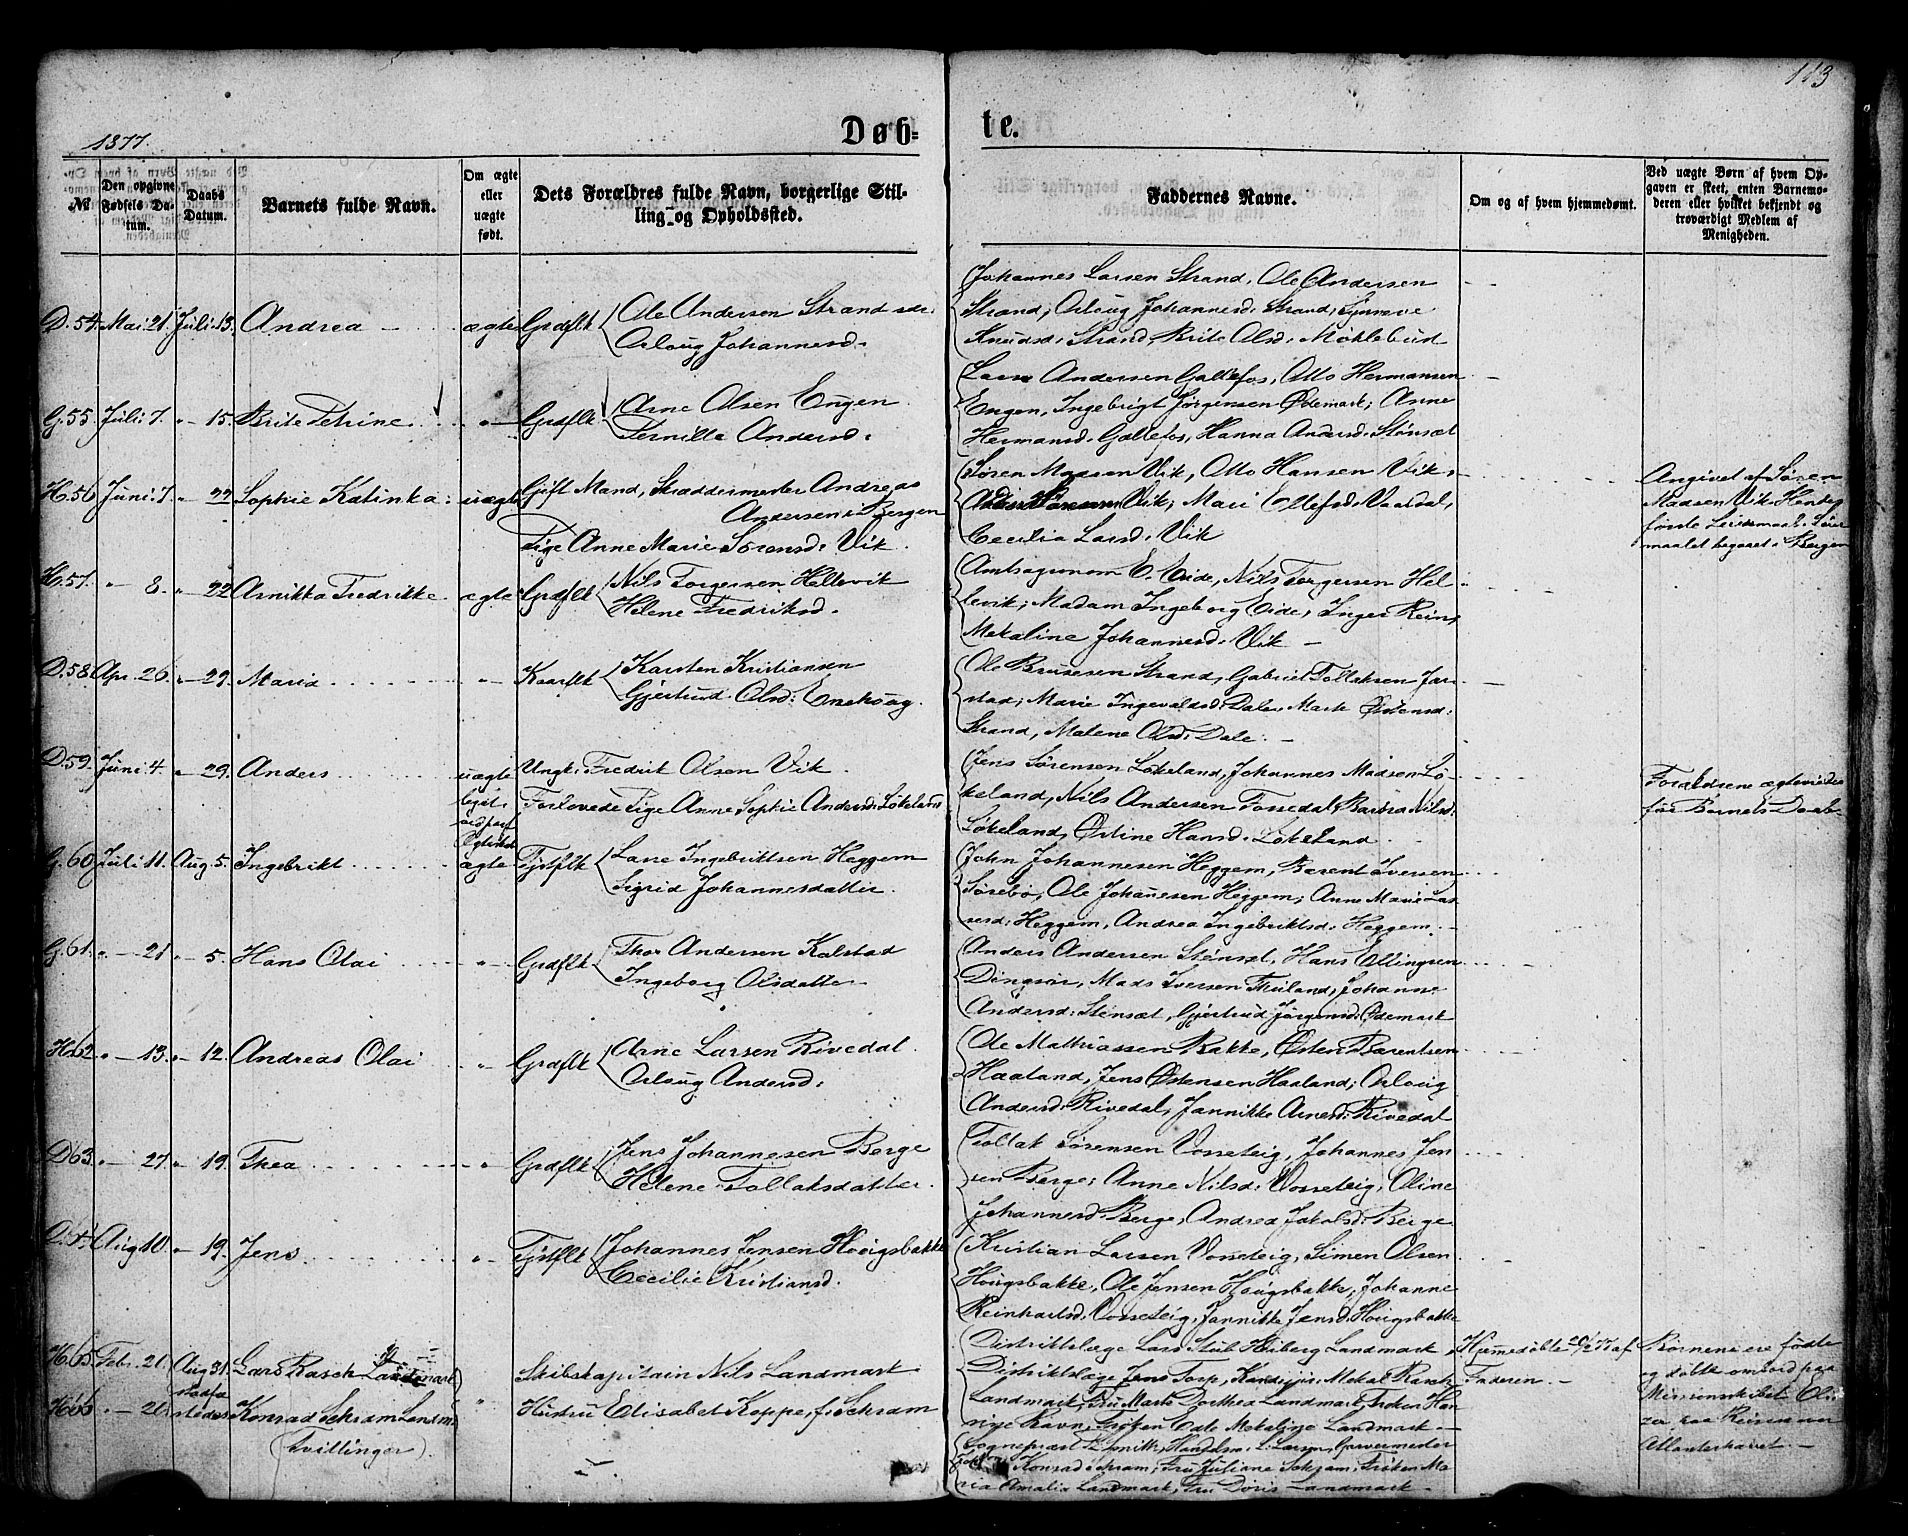 113
1877.
Døb-
te.
№
Den opgivne Fødsels Datum.
Daabs Datum.
Barnets fulde Navn.
Om ægte eller uægte født.
Dets Forældres fulde Navn, borgerlige Stilling og Opholdssted.
Faddernes Navne.
Om og af hvem hjemmedømt.
Ved uægte Børn af hvem Opgaven er skeet, enten Barnemoderen eller hvilket bekjendt og troværdigt Medlem af Menigheden.
D. 54. Mai 21. Juli 13. Andrea ægte Grdflk Ole Andersen Strand
Orloug Johannesd.
Johannes Larsen Strand, Ole Andersen
Strand, Orloug Johannesd. Strand, Synneve
Knudsd. Strand, Brite Olsd. Møklebust
G. 55. Juli 7. " 15. Brite Petrine " Grdflk Arne Olsen Engen
Pernille Andersd.
Lasse Andersen Gallefos, Otto Hermansen
Engen, Ingebrigt Jørgensen Ødemark, Anne
Hermansd. Gallefos, Hanna Andersd. Stønsæt
H. 56 Juni 7. " 22 Sophie Katinka uægte Gift Mand, Skræddermester Andreas
Andersen i Bergen
Pige Anne Marie Sørensd. Vik
Søren Madsen Vik, Otto Hansen Vik,
Vik, Mari Ellefsd. Vaardal,
Cecilia Larsd. Vik
Angivet af Søren
Madsen Vik. Hendes
første Leiermaal. Leier
maalet begaaet i Bergen
H. 57. " 8. " 22 Annikka Fredrikke ægte Grdflk Nils Torgersen Hellevik
Helene Fredriksd.
Amtsagronom E. Eide, Nils Torgersen Hel
levik, Madam Ingeborg Eide, Inger Reins
Mekaline Johannesd. Vik
D. 58. Apr. 26. " 29. Maria " Kaarflk Karsten Kristiansen
Gjertrud Olsd. Eneskoug.
Ole Brudesen Strand, Gabriel Tollaksen Jar
stad, Marie Ingevaldsd. Dale, Marte Østensd.
Strand, Malene Olsd. Dale.
D. 59. Juni 4. " 29. Anders uægte Ungk. Fredrik Olsen Vik.
Forlovede Pige Anne Sophie Andersd. Løkeland
Jens Sørensen Løkeland, Johannes Madsen Lø-
keland, Nils Andersen Fossedal, Barbra Nilsd.
Løkeland, Østine Hansd. Løkeland
Forældrene ægteviedes
før Barnets Daab
G. 60. Juli 11. Aug. 5. Ingebrikt ægte Tjstflk Lasse Ingebriktsen Heggem
Sigrid Johannesdatter.
John Johannesen Heggem, Barent Iversen
Sørebø, Ole Johannesen Heggem, Anne Marie Las
sesd. Heggem, Andrea Ingebriktsd. Heggem.
G. 61. " 21 " 5. Hans Olai " Grdflk Thor Andersen Kalstad
Ingeborg Olsdatter
Anders Andersen Stensæt, Hans Ellingsen
Dingsør, Mads Iversen Thuland, Johanne
Andersd. Stensæt, Gjertrud Jørgensd. Ødemark
H. 62. " 13. " 12. Andreas Olai " Grdflk Arne Larsen Rivedal
Orloug Andersd.
Ole Mathiassen Bakke, Østen Barentsen
Haaland, Jens Østensen Haaland, Orloug
Andersd. Rivedal, Jannikke Arnesd. Rivedal
D. 63. " 27. " 19. Thea " Grdflk Jens Johannesen Berge
Helene Tollaksdatter.
Tollak Sørensen Vosseteig, Johannes Jen
sen Berge, Anne Nilsd. Vosseteig, Oline
Johannesd. Berge, Andrea Jakobsd. Berge
D. 64. Aug. 10. " 19. Jens " Tjstflk Johannes Jensen Hougsbakke
Cecilie Kristiansd.
Kristian Larsen Vosseteig, Simen Olsen
Hougsbakke, Ole Jensen Hougsbakke, Johanne
Reinhartsd. Vosseteig, Jannikke Jensd. Hougsbakke
H. 65. Febr. 21. Aug. 31. Lars Rasch Landmark
stadfæstedes
H. 66. " 21. Konrad Schram Landm.
(Tvillinger).
Skibskapitain Nils Landmark
Hustru Elisabet Koppe, f. Schram
Distriktslæge Lars Stub Heiberg Landmark,
Distriktslæge Jens Torp, Mekal Rasch
Landmark, Fru Marte Dorthea Landmark, Frøken Han
Ravn, Frøken Ede Mekaline Landmark
Sognepræst L. Smitt, Handelsm. L. Larsen, Garvermester
Konrad Schram, Fru Juliane Schram, Frøken Ma
ria Amalia Landmark, Fru Doris Landmark
Hjemedøbte 77 af
Faderen.
Børnene ere fødte
og døbte ombord paa
Missionsskibet
paa Reisen over
Atlanterhavet.